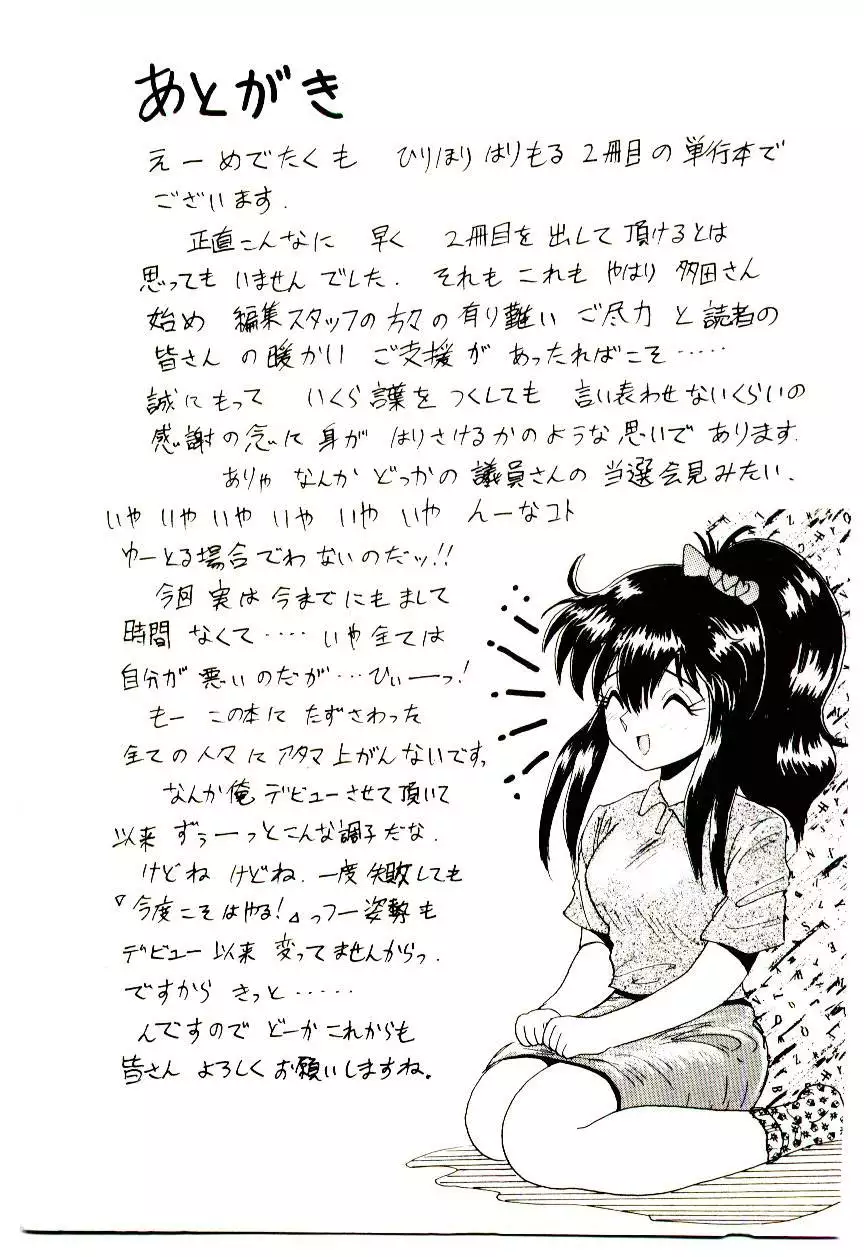 あとがき
えーめでたくも ひりほり はりもる 2冊目の単行本で
ございます.
正直こんなに 早く 2冊目を出して頂けるとは
思ってもいませんでした. それもこれも やはり 多田さん
始め 編集スタッフの方々の有り難い ご尽力と読者の
皆さんの暖かい ご支援が あったればこそ……
誠にもって いくら言葉を つくしても 言い表わせないくらいの
感謝の念に身が はりさけるかのような思いであります.
ありゃ なんか どっかの議員さんの当選会見みたい.
いや いや いや いや いや いや んーなコト
ゆーとる場合でわないのだッ!!
今回 実は今までにもまして
時間 なくて…… いや全ては
自分が悪いのだが…ひぃーっ!
もー この本に たずさわった
全ての人々にアタマ上がんないです。
なんか俺 デビューさせて頂いて
以来 ずぅーっとこんな調子だな.
けどね けどね. 一度失敗しても
『今度こそはやる!』っつー姿勢も
デビュー以来 変ってませんからっ.
ですから きっと……
んですので どーか これからも
皆さん よろしく お願いしますね。